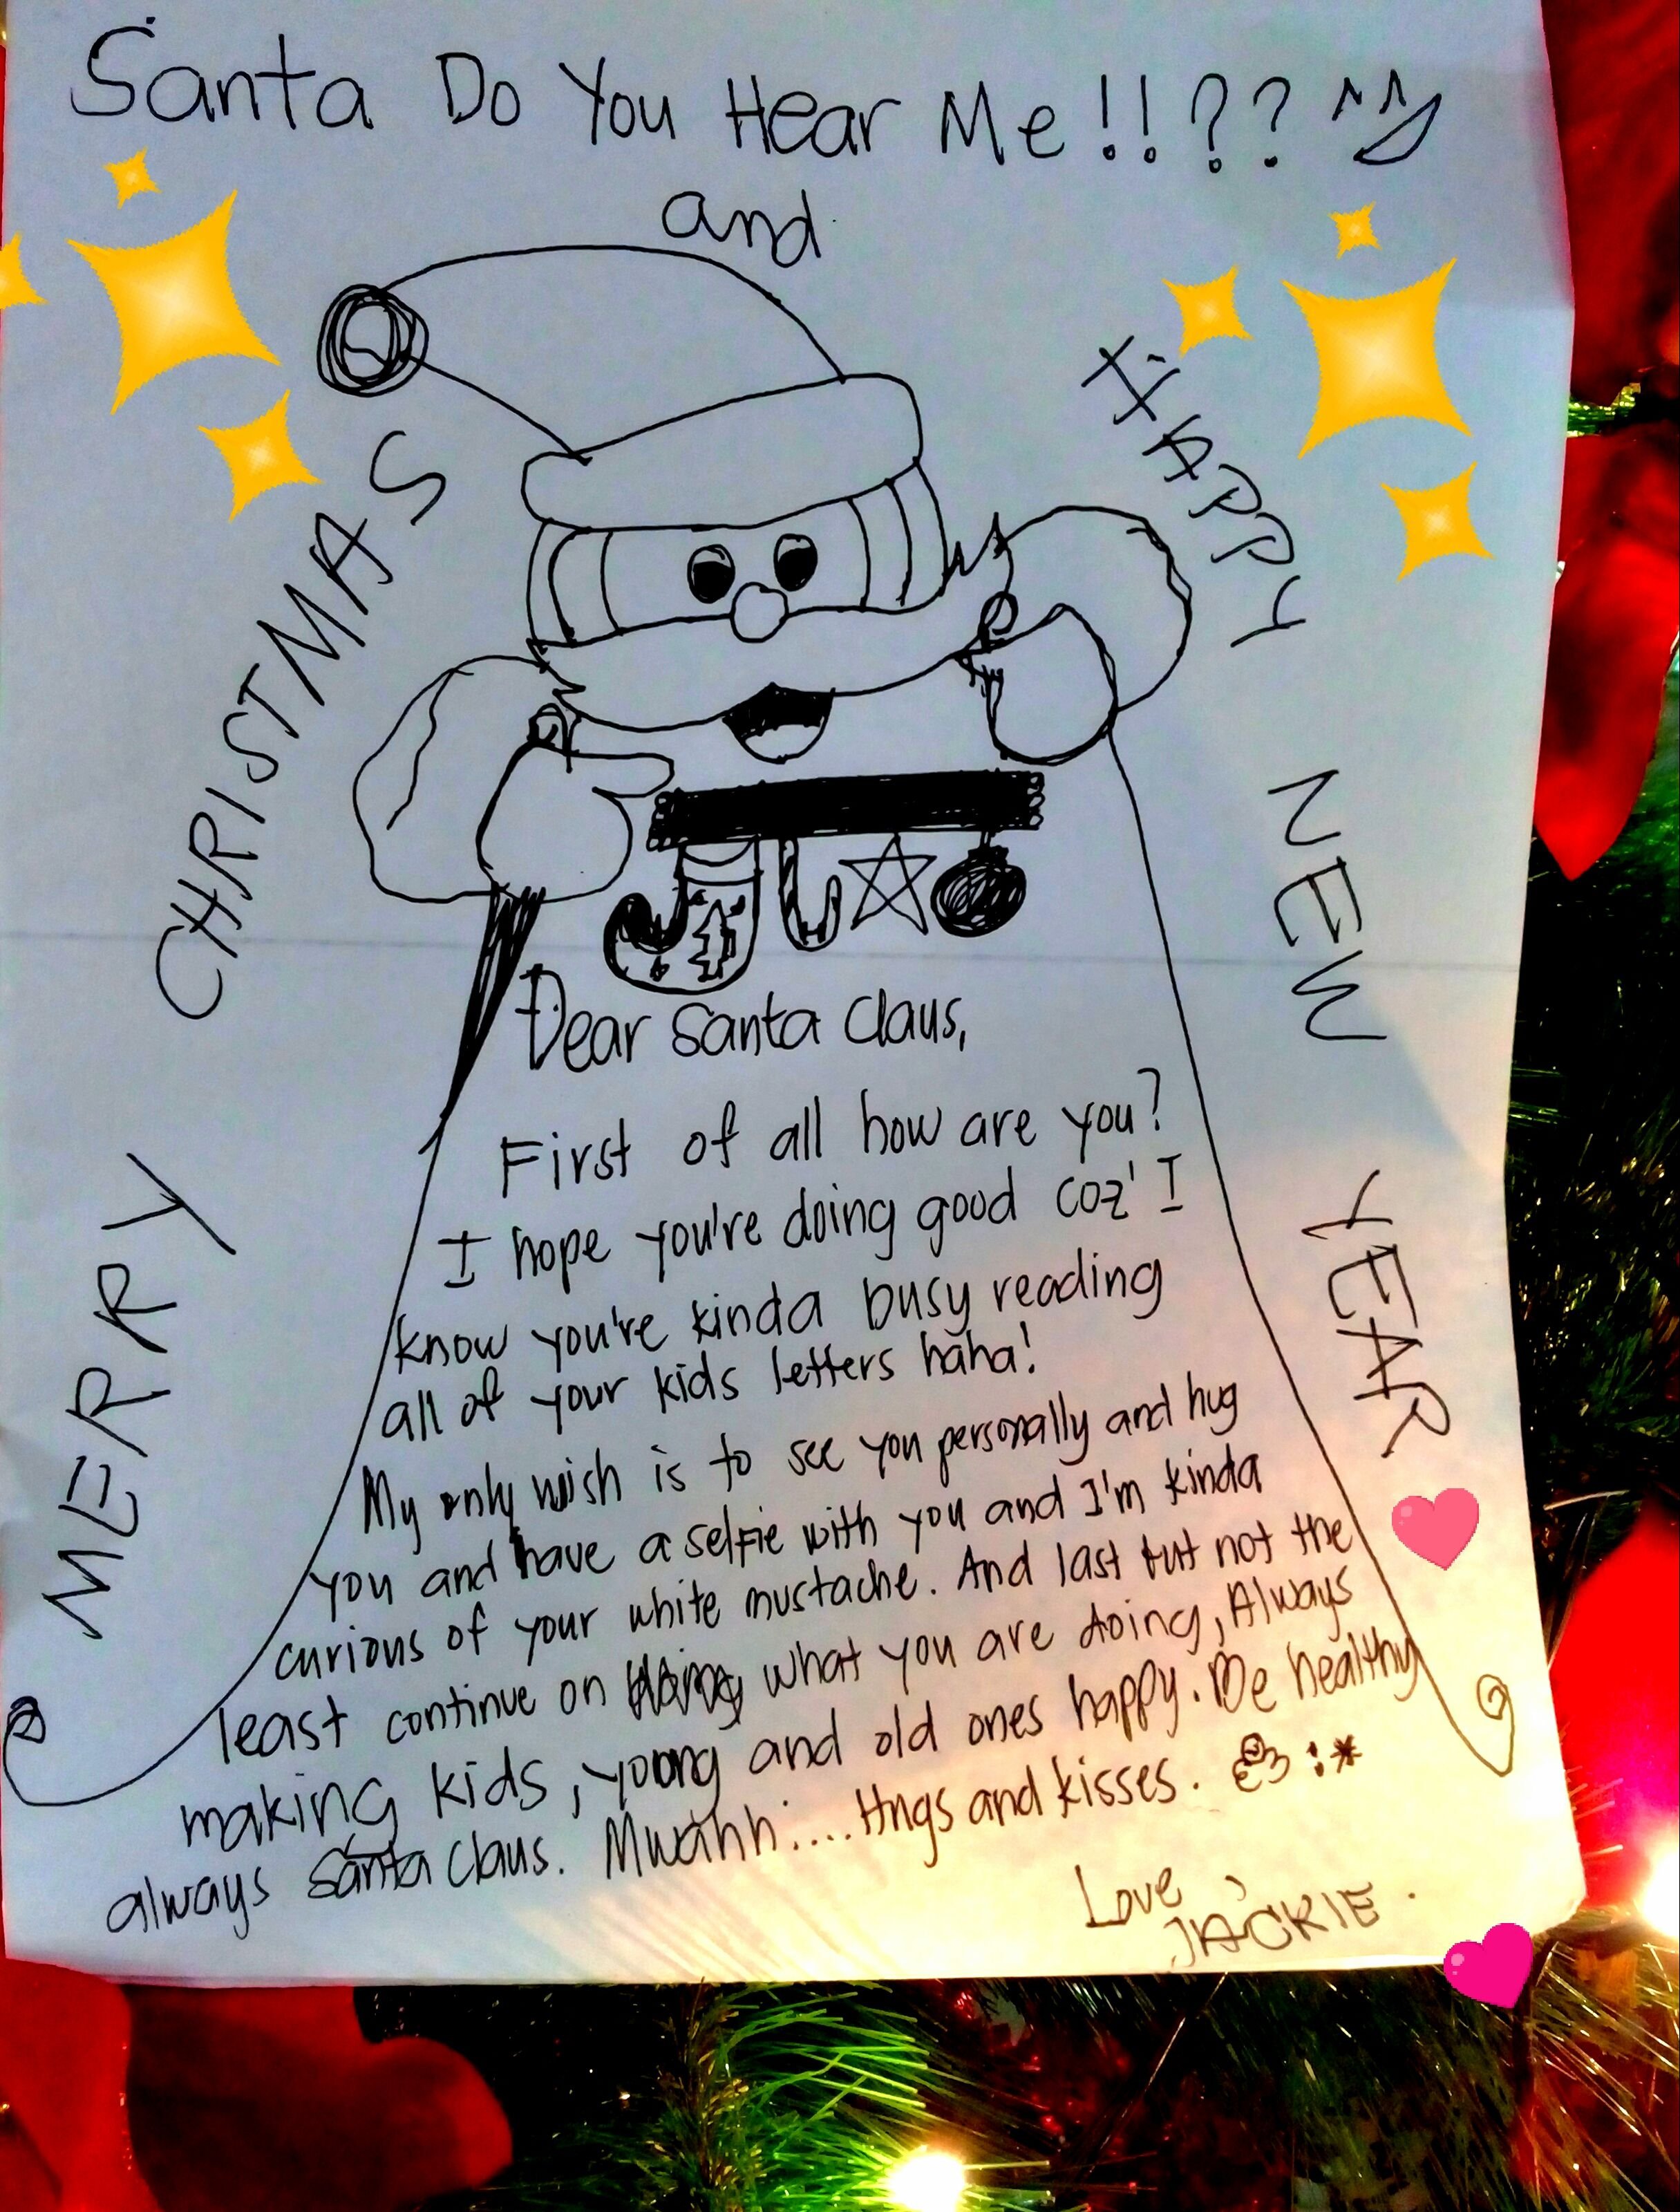 Santa Do You Hear Me!!??
and
MERRY CHRISTMAS
HAPPY NEW YEAR
Dear Santa Claus,
First of all how are you?
I hope you're doing good coz' I
know you're kinda busy reading
all of your kids letters haha!
My only wish is to see you personally and hug
you and have a selfie with you and I'm kinda
curious of your white mustache. And last but not the
least continue on what you are doing, Always
making kids, young and old ones happy. Be healthy
always Santa Claus. Mwahh:.... Hugs and kisses. :*
Love,
JACKIE.